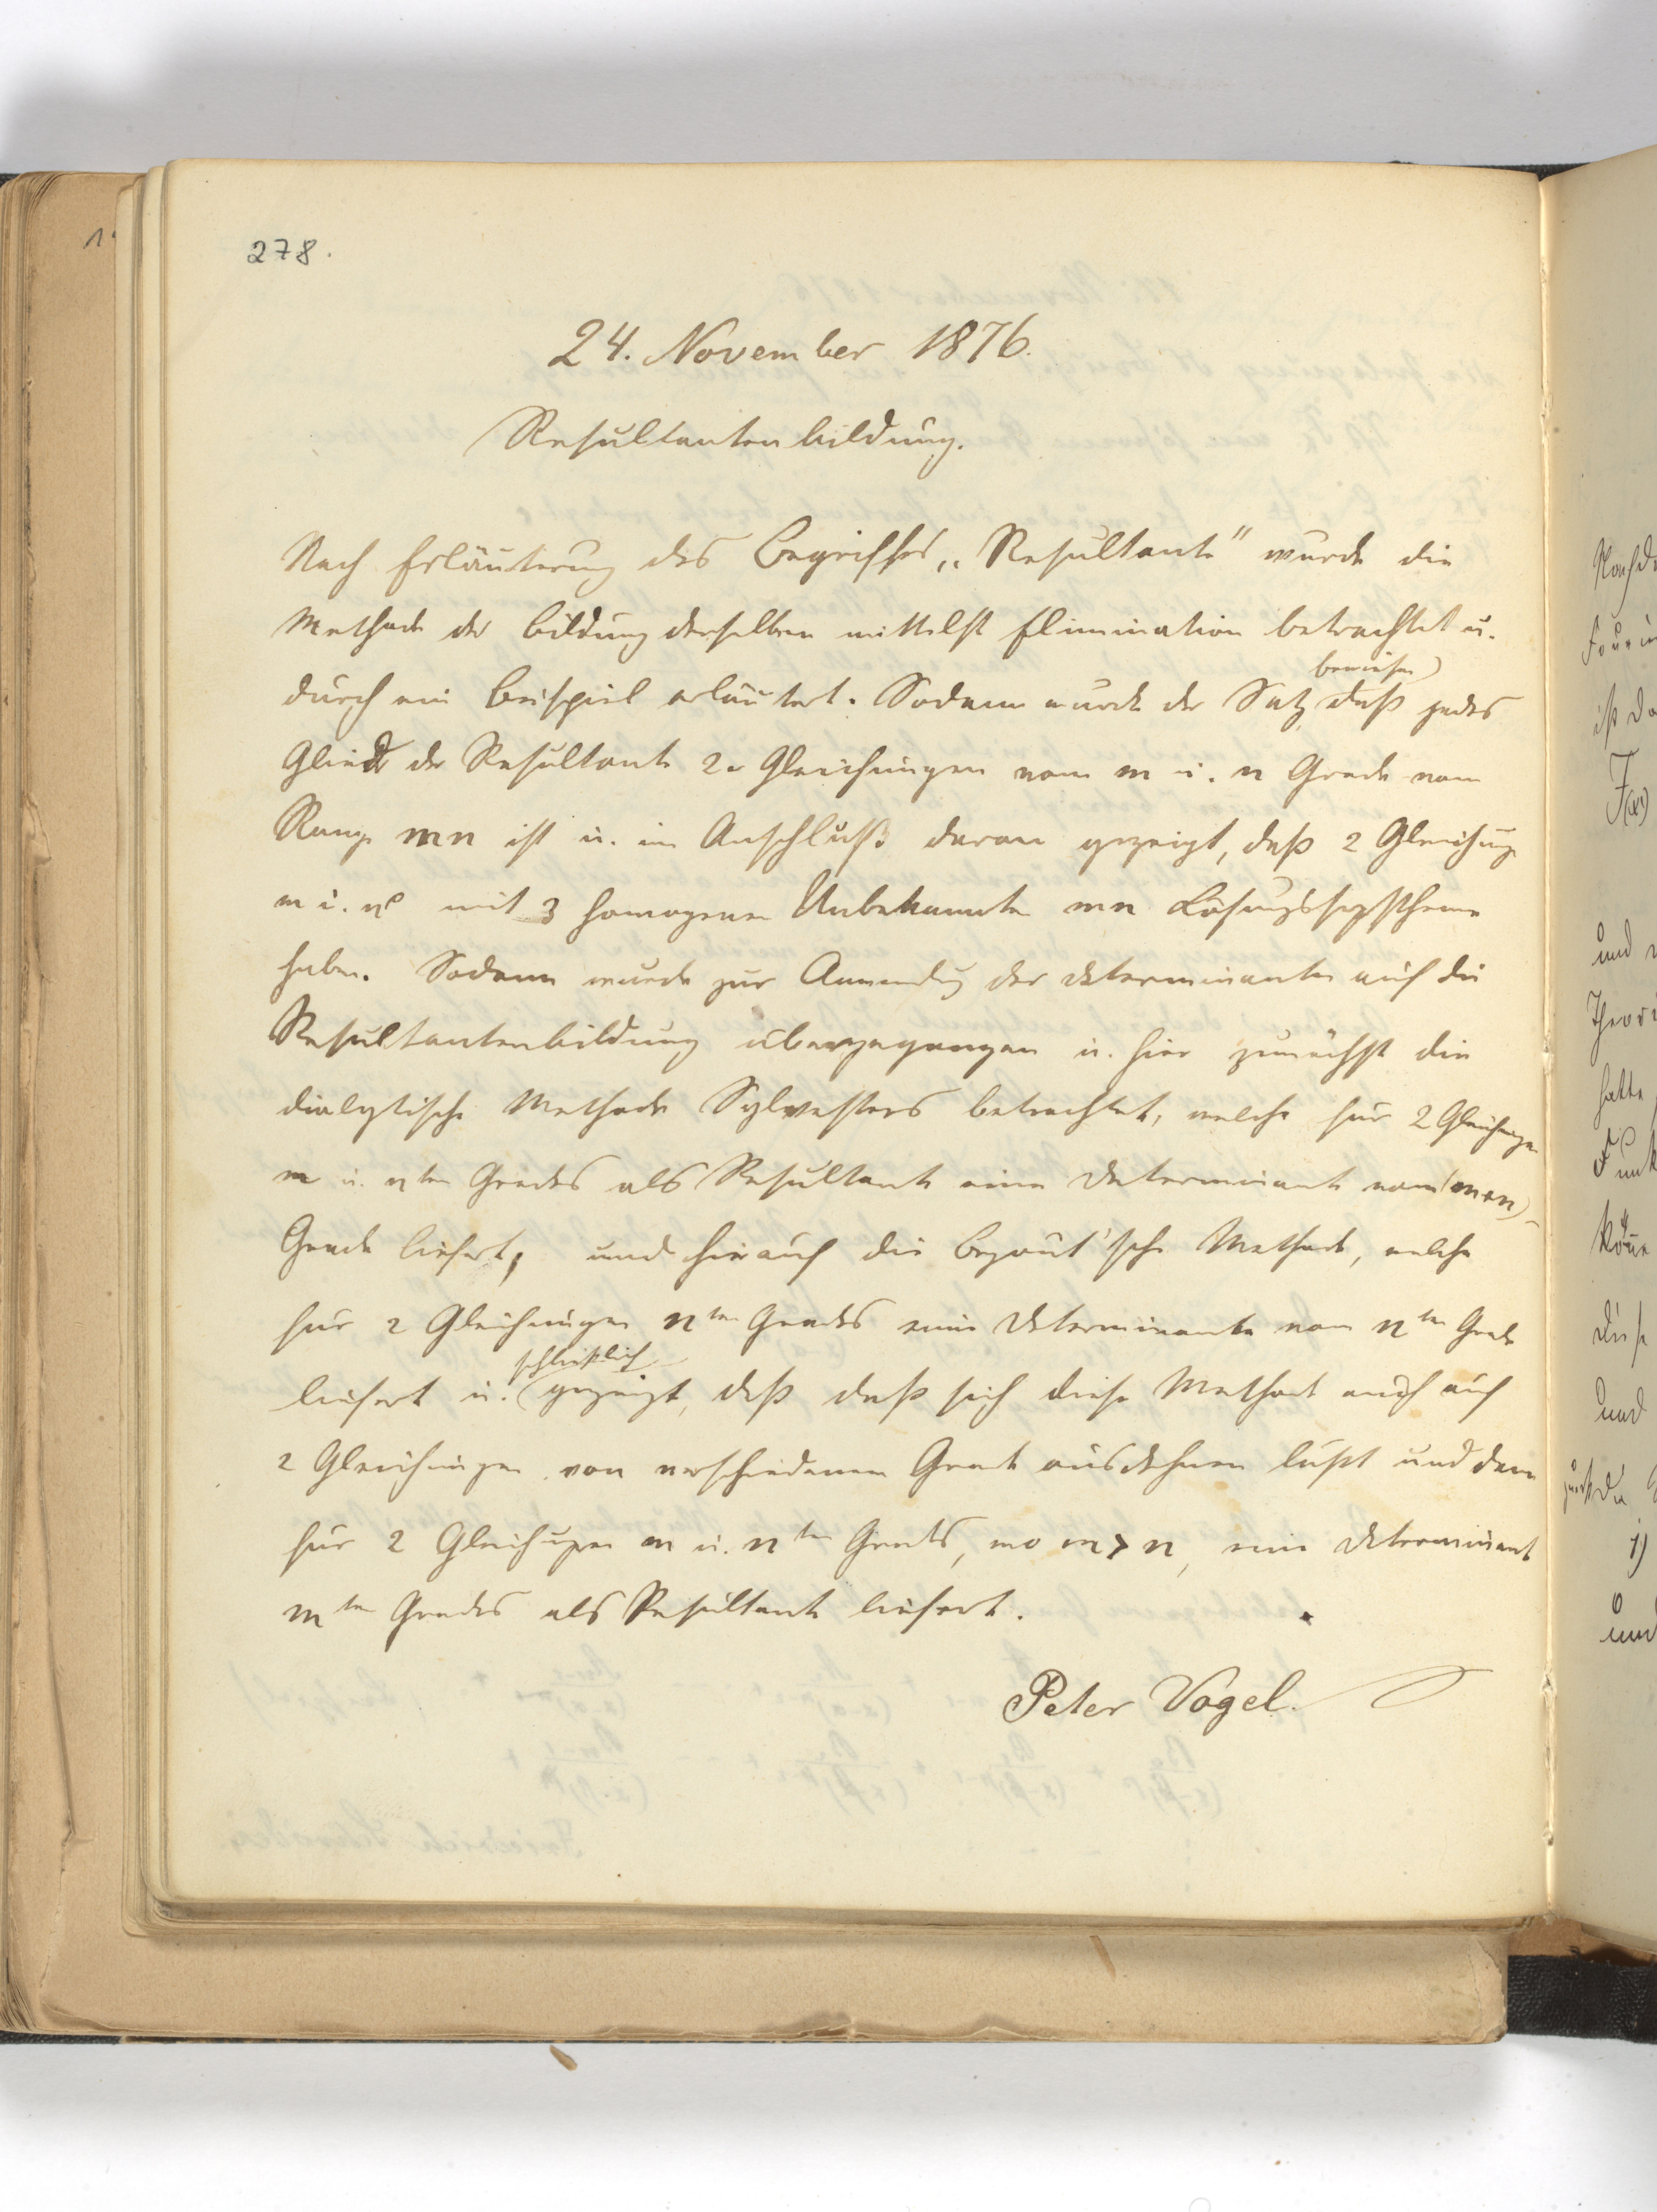 278.
24. November 1876.
Resultantenbildung.
Nach Erläuterung des Begriffes „Resultante" wurde die
Methode der Bildung derselben mittelst Elimination betrachtet u.
durch ein Beispiel erläutert. Sodann wurde der Satz bewiesen, daß jedes
Glied der Resultante 2er Gleichungen vom m u. n Grade vom
Range mn ist u. im Anschluß daran gezeigt, daß 2 Gleichung
m u. n mit 3 homogenen Unbekannten mn Lösungssystheme
haben. Sodann wurde zur Anwendg der Determinanten auf die
Resultantenbildung übergegangen u. hier zunächst die
dialytische Methode Sylvesters betrachtet, welche für 2 Gleichungen
m u. nten Grades als Resultante eine Determinante vom (m+n)-
Grade liefert, und hierauf die Bezout'sche Methode, welche
für 2 Gleichungen nten Grades eine Determinante vom nten Grade
liefert u. schließlich gezeigt, daß daß sich diese Methode auch auf
2 Gleichungen von verschiedenem Grade ausdehnen läßt und dann
für 2 Gleichungen m u. nten Grades, wo m > n, eine Determinante
mten Grades als Resultante liefert.
Peter Vogel.